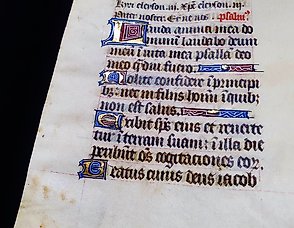 Kyrieleyson .iij. Xp̄e eleyson .iij.
Pater noster. Et ne nos. psalm̄9
Lauda anima mea do
minum laudabo deum
meū i uita mea psallā deo
meo q̄ diu fuero
Nolite confidere i principi
bꝫ: neꝫ in filiis hoīm i quibꝫ
non est salus.
Exibit sp̄s eius et reuerte
tur i terram suam: i illa die
peribūt os̄ cogitaciones eoꝝ.
Beatus cuius deus iacob